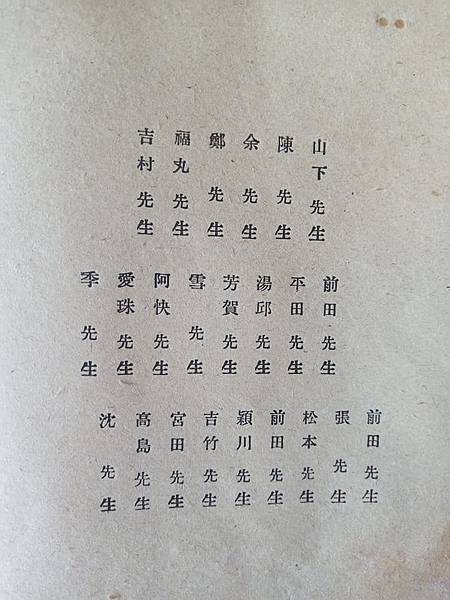 山下先生
陳先生
余先生
鄭先生
福丸先生
吉村先生
前田先生
平田先生
湯邱先生
芳賀先生
雪先生
阿快先生
愛珠先生
季先生
前田先生
張先生
松本先生
前田先生
穎川先生
吉竹先生
宮田先生
高島先生
沈先生